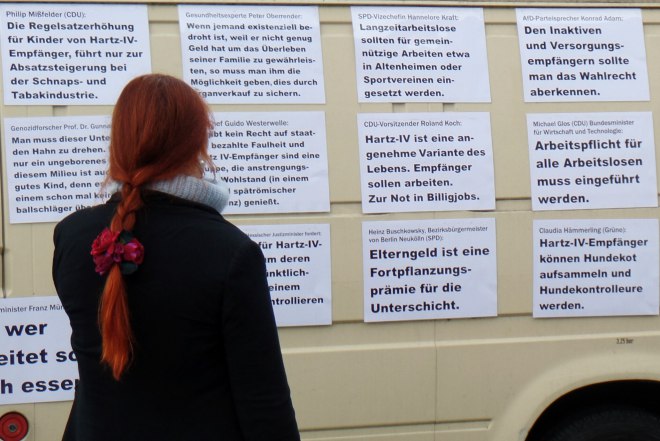 Philip Mißfelder (CDU):
Die Regelsatzerhöhung
für Kinder von Hartz-IV-
Empfänger, führt nur zur
Absatzsteigerung bei
der Schnaps- und
Tabakindustrie.
Gesundheitsexperte Peter Oberender:
Wenn jemand existenziell be-
droht ist, weil er nicht genug
Geld hat um das Überleben
seiner Familie zu gewährleis-
ten, so muss man ihm die
Möglichkeit geben, dies durch
Organverkauf zu sichern.
SPD-Vizechefin Hannelore Kraft:
Langzeitarbeitslose
sollten für gemein-
nützige Arbeiten etwa
in Altenheimen oder
Sportvereinen ein-
gesetzt werden.
AfD-Parteisprecher Konrad Adam:
Den Inaktiven
und Versorgungs-
empfängern sollte
man das Wahlrecht
aberkennen.
Genozidforscher Prof. Dr. Gunna
Man muss dieser Unte
den Hahn zu drehen.
nur ein ungeborenes
diesem Milieu ist auc
gutes Kind, denn e
einem schon mal kein
ballschläger üb
ef Guido Westerwelle:
ibt kein Recht auf staat-
bezahlte Faulheit und
tz-IV-Empfänger sind eine
uppe, die anstrengungs-
Wohlstand (in einem
d spätrömischer
enz) genießt.
CDU-Vorsitzender Roland Koch:
Hartz-IV ist eine an-
genehme Variante des
Lebens. Empfänger
sollen arbeiten.
Zur Not in Billigjobs.
Michael Glos (CDU) Bundesminister
für Wirtschaft und Technologie:
Arbeitspflicht für
alle Arbeitslosen
muss eingeführt
werden.
Justizminister fordert:
für Hartz-IV-
um deren
ünktlich-
einem
kontrollieren
Heinz Buschkowsky, Bezirksbürgermeister
von Berlin Neukölln (SPD):
Elterngeld ist eine
Fortpflanzungs-
prämie für die
Unterschicht.
Claudia Hämmerling (Grüne):
Hartz-IV-Empfänger
können Hundekot
aufsammeln und
Hundekontrolleure
werden.
minister Franz Mün
wer
eitet so
ch essen